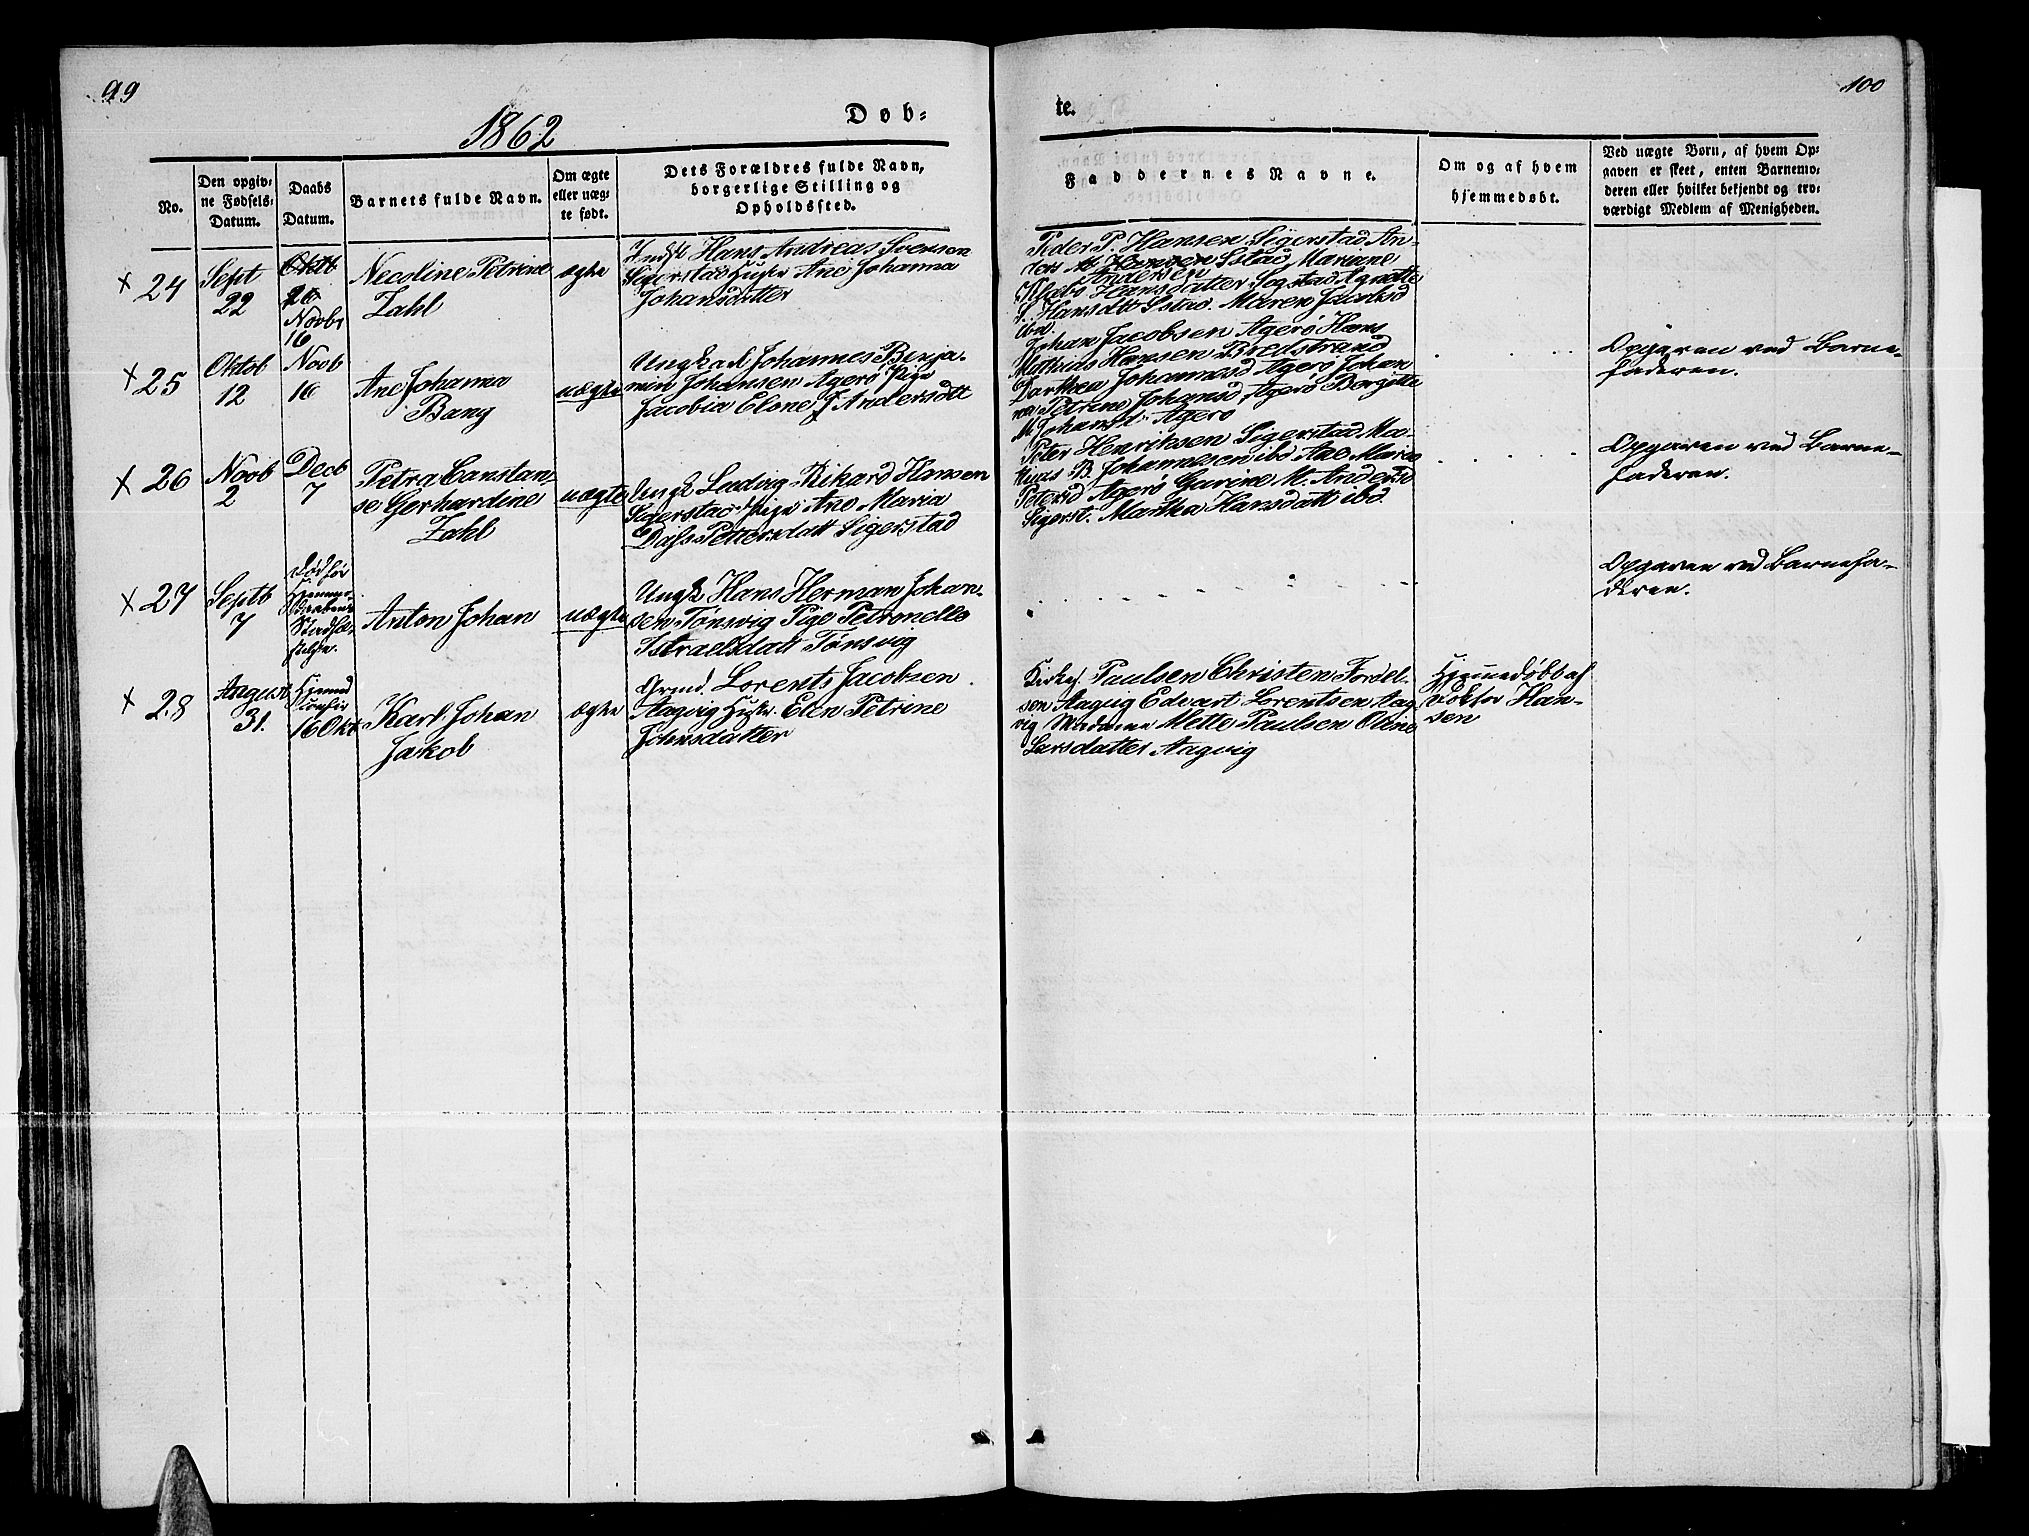 99
100
1862
Døb-
te.
No.
Den opgiv-
ne Fødsels-
Datum.
Daabs
Datum.
Barnets fulde Navn.
Om ægte
eller uæg-
te født.
Dets Forældres fulde Navn,
borgerlige Stilling og
Opholdssted.
Faddernes Navne.
Om og af hvem
hjemmedøbt.
Ved uægte Børn, af hvem Op-
gaven er skeet, enten Barnemo-
deren eller hvilket bekjendt og tro-
værdigt Medlem af Menigheden.
x 24
Sept
22
Oktb
26
Novbr
16
Necoline Petrine
Zahl
ægte
Inds Hans Andreas Svensen
Sigerstad Hustr Ane Johanna
Johansdatter
Peder P. Hansen Sigerstad An-
ders Sstad Mariane
Andersen
Hansdatter Sogstad Agnette
Hansdtr Sstad. Maren Jacobsd
ibd.
x 25
Oktob
12
Novb
16
Ane Johanna
Bang
uægte
Ungkarl Johannes Benja-
min Johansen Agerö Pige
Jacobia Elone J Andersdtt
Johan Jacobsen Agerö Hans
Mathias Hansen Bredstrand
Darthea Johannesd Agerö Johan
na Petrine Johansd, Agerö Borgitte
M. Johanst. Agerö
Opgaven ved Barne-
faderen.
x 26
Novb
2
Decb
7
Petra Constan-
se Gerhardine
Zahl
uægte
Ungk Ludvig Rikard Hansen
Sigerstad Pige Ane Maria
Dass Pettersdatt Sigerstad
Peter Henriksen Sigerstad Ma-
thias B. Johannessen ibd Ane Maria
Petersd Agerö Gurine M. Andersd
Sigerst. Martha Hansdatt ibd.
Opgaven ved Barne-
faderen.
x 27
Septb
7
Død før
Anton Johan
uægte
Ungk Hans Herman Johan-
sen Tönsvig Pige Petronelle
Istraelsdatt Tönsvig
Opgaven ved Barnefa-
deren.
x 28
August
31.
16 Okt
Karl Johan
Jakob
ægte
Grmd. Lorents Jacobsen
Aagvig Hustr. Elen Petrine
Johnsdatter
Kirkes. Paulsen Christen Tordel-
sen Aagvig Edvart Lorentsen Aag-
vig Madame Mette Paulsen Oline
Larsdatter Aagvig
Hjemmedøbt af
Doktor Han-
sen